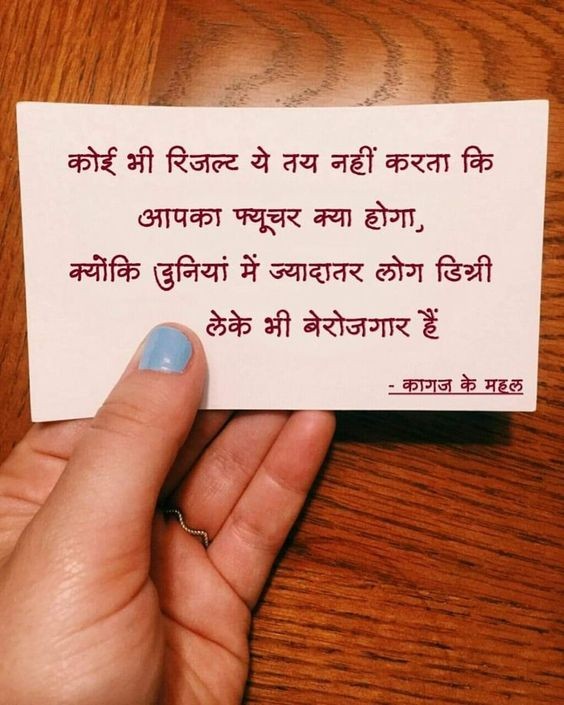 कोई भी रिजल्ट ये तय नहीं करता कि
आपका फ्यूचर क्या होगा,
क्योंकि दुनियां में ज्यादातर लोग डिग्री
लेके भी बेरोजगार हैं
- कागज के महल